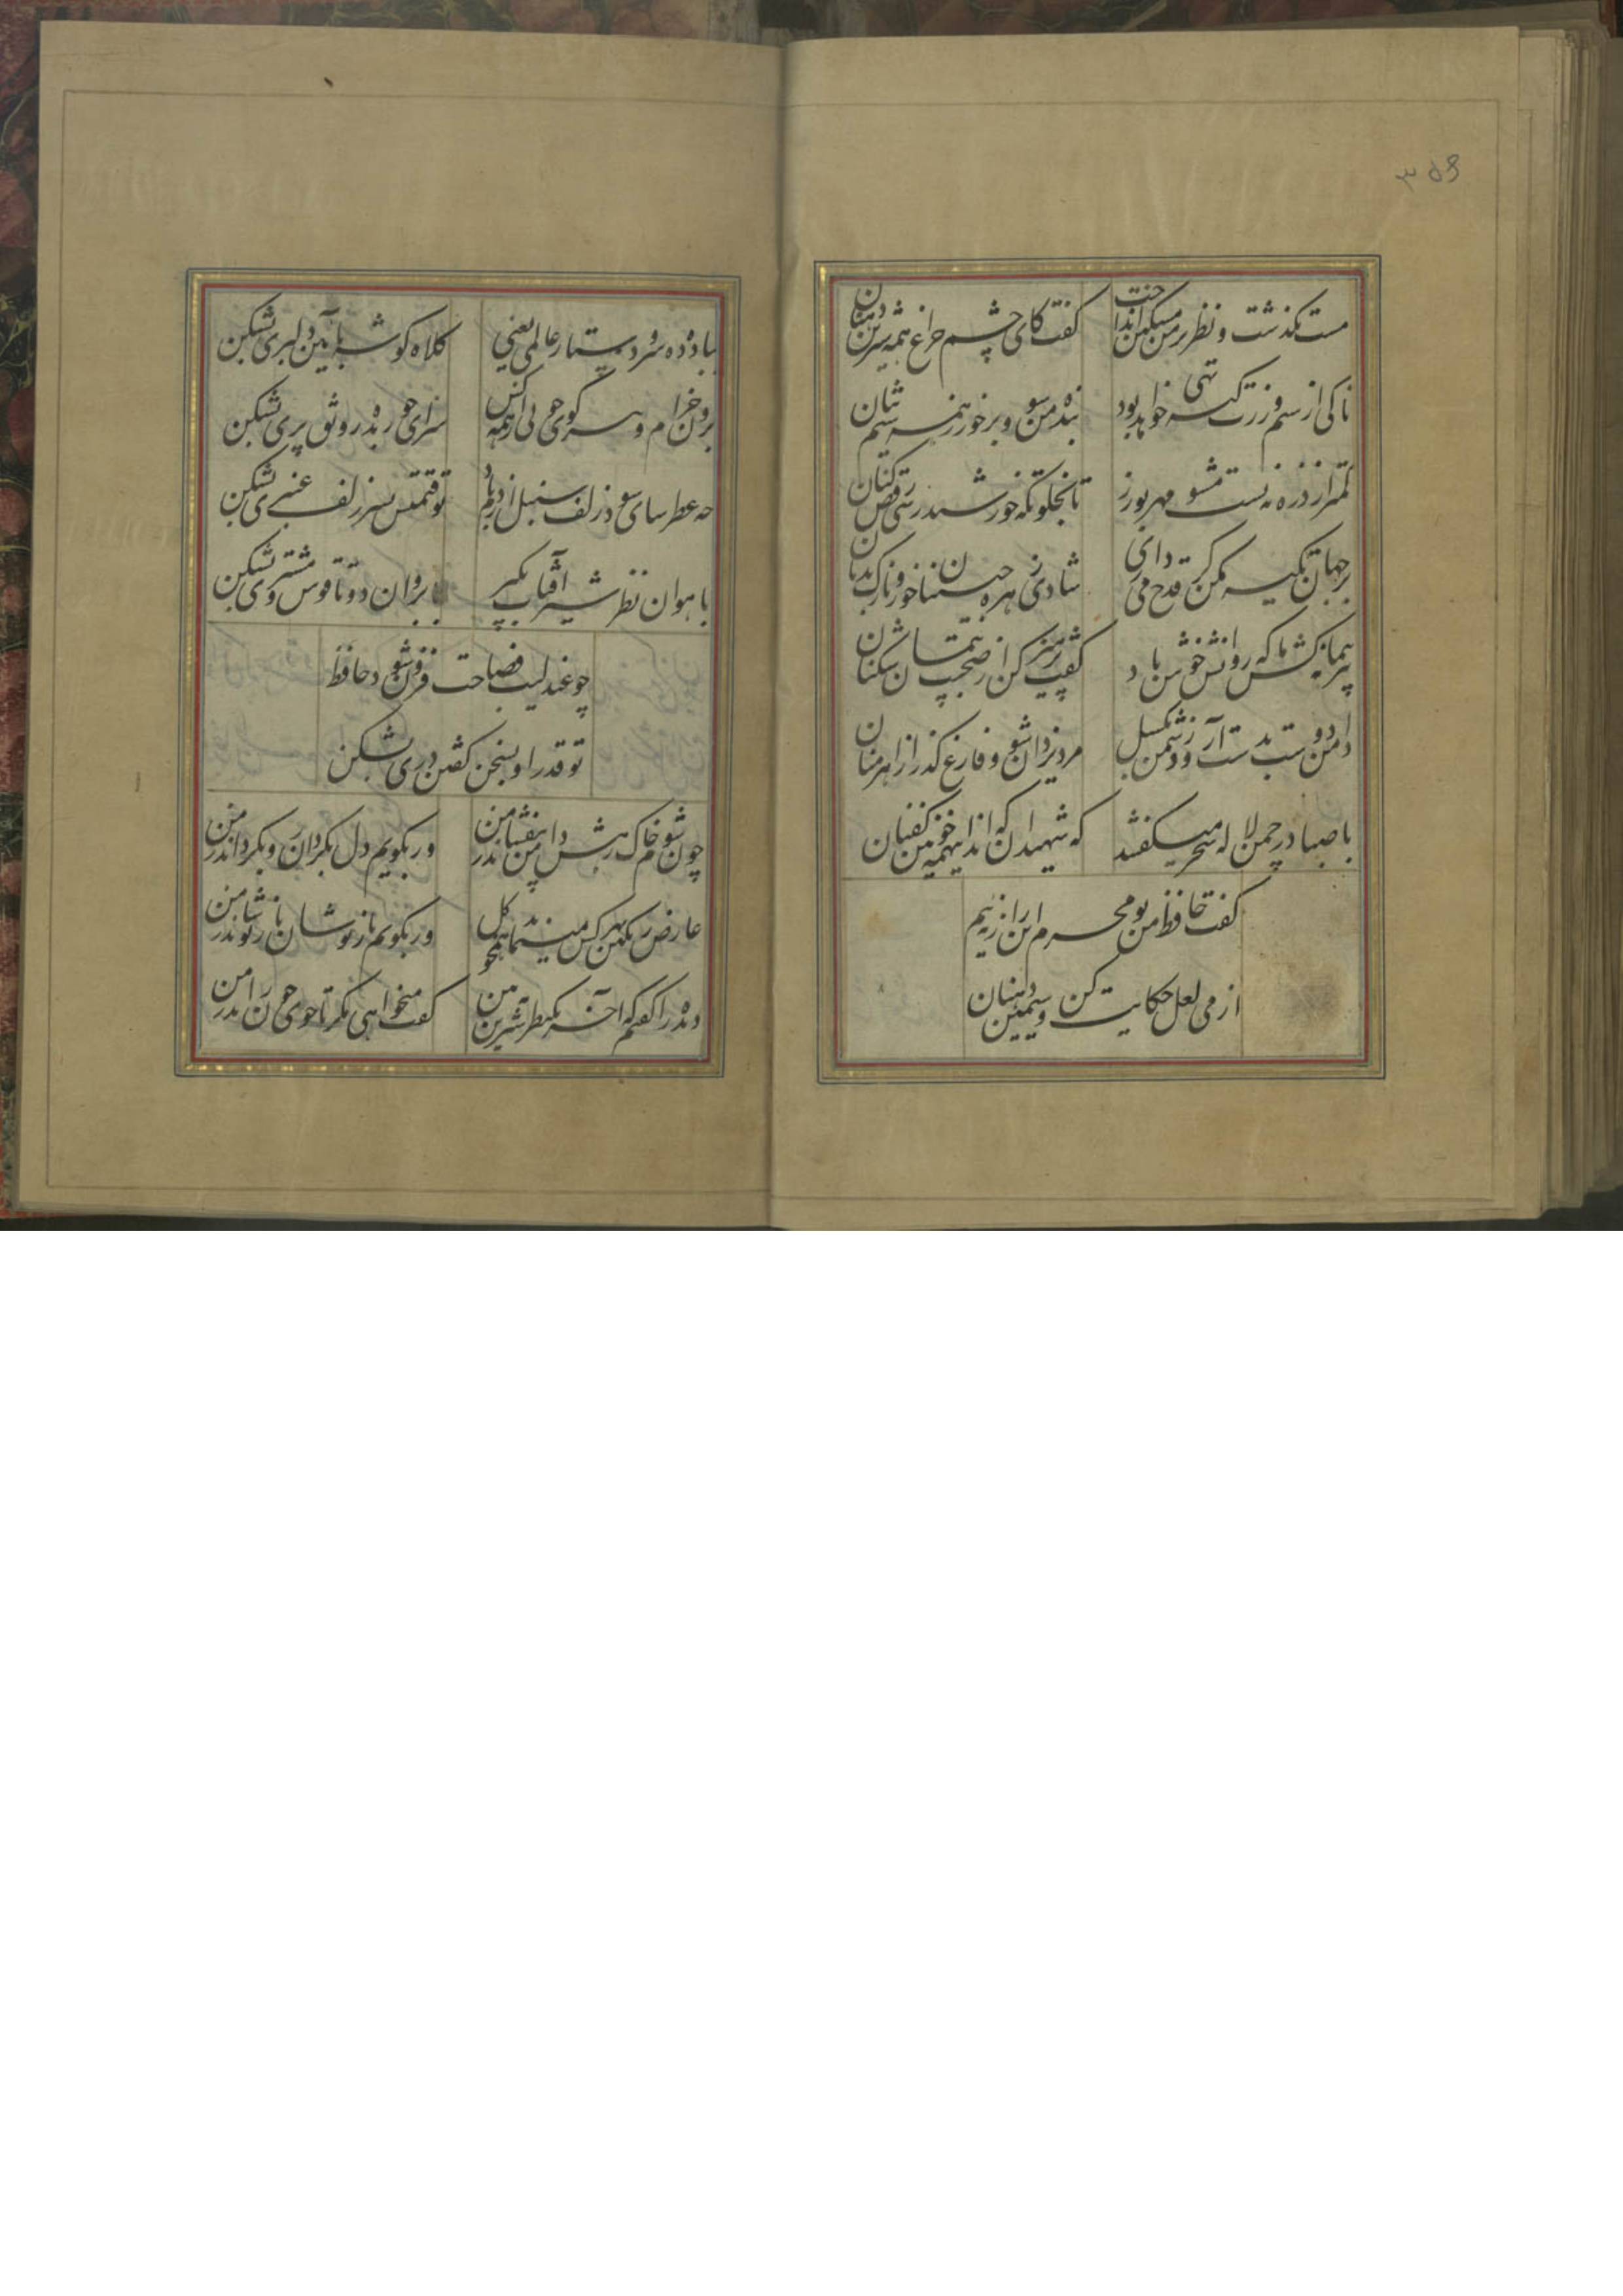 ۳۵۶
مست بگذشت و نظر بر من مسکین انداخت
گفت کای چشم و چراغ همه شیرین دهنان
تا کی از سیم و زرت کیسه تهی خواهد بود
بنده من شو و برخور ز همه سیم تنان
کمتر از ذره نه پست مشو مهر بورز
تا بخلوتگه خورشید رسی رقص کنان
بر جهان تکیه مکن گر قدح می داری
شادی زهره جبینان خور و نازک بدنان
پیر پیمانه کش ما که روانش خوش باد
گفت پرهیز کن از صحبت پیمان شکنان
دامن دوست بدست آر و ز دشمن بگسل
مرد یزدان شو و فارغ گذر از اهرمنان
با صبا در چمن لاله سحر میگفتم
که شهیدان که اند این همه خونین کفنان
گفت حافظ من و تو محرم این راز نه ایم
از می لعل حکایت کن و سیمین دهنان
بباد ده سر و دستار عالمی یعنی
کلاه گوشه بآیین دلبری بشکن
برون خرام و ببر گوی خوبی از همه کس
سزای حور بده رونق پری بشکن
چو عطرسای شود زلف سنبل از دم باد
تو قیمتش بسر زلف عنبری بشکن
بآهوان نظر شیر آفتاب بگیر
بابروان دوتا قوس مشتری بشکن
چو عندلیب فصاحت فروشد حافظ
تو قدر او بسخن گفتن دری بشکن
چون شوم خاک رهش دامن بیفشاند ز من
ور بگویم دل بگردان رو بگرداند ز من
عارض رنگین بهر کس مینماید همچو گل
ور بگویم باز پوشان باز پوشاند ز من
دیده را گفتم که آخر یک نظر سیرش ببین
گفت میخواهی مگر تا جوی خون راند ز من